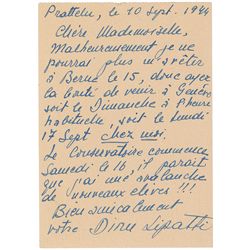 Pratteln, le 10 sept. 1944
Chère Mademoiselle,
Malheureusement je ne
pourrai plus m'arrêter
à Berne le 15, donc ayez
la bonté de venir à Genève
soit le Dimanche à l'heure
habituelle, soit le lundi
17 Sept chez moi.
Le Conservatoire commence
Samedi le 16, il paraît
que j'ai une avalanche
de nouveaux élèves !!!
Bien amicalement
votre Dinu Lipatti